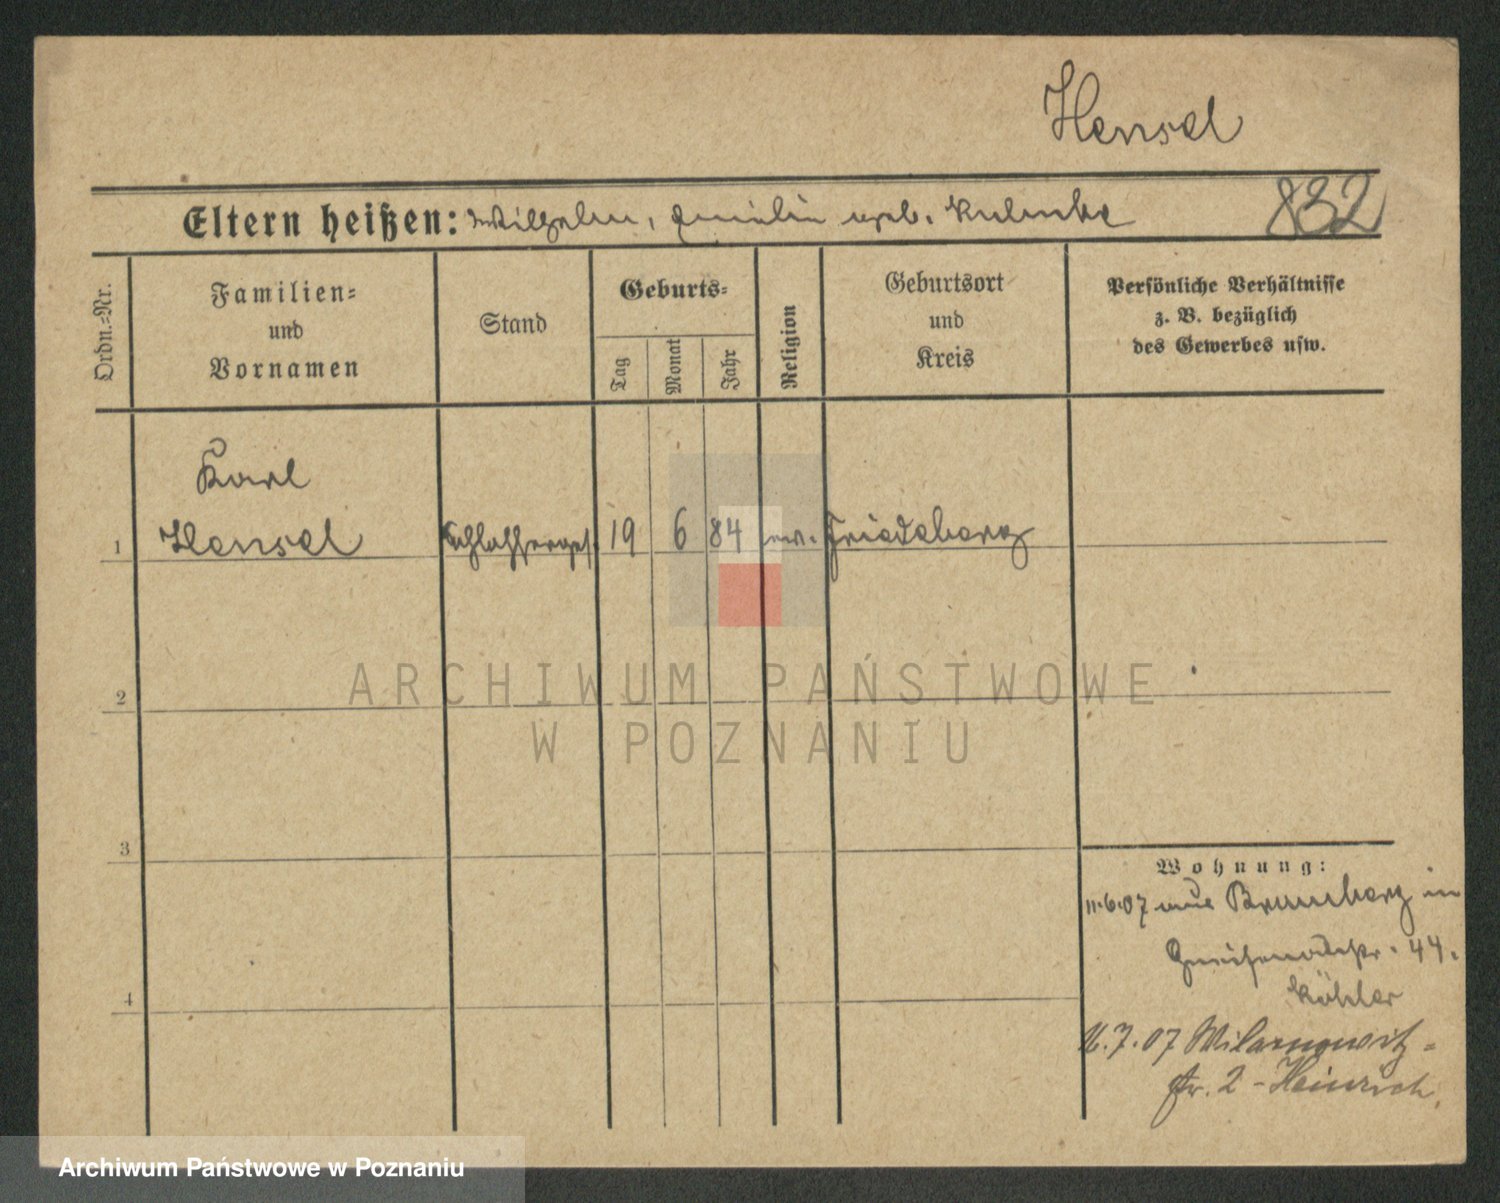 Hensel
Eltern heißen: Wilhelm, Emilie geb. 832
Ordn.-Nr.
Familien-
und
Vornamen
Stand
Geburts-
Tag
Monat
Jahr
Religion
Geburtsort
und
Kreis
Persönliche Verhältnisse
z. B. bezüglich
des Gewerbes usw.
Karl
1 Hensel Schlosserges. 19 6 84 ev. Friedeberg
2
3
4
Wohnung:
11.6.07 aus Bromberg in
Gneisenaustr. 44.
Köhler
7.07 Wilamowitz-
str. 2 - Heinrich.
ARCHIWUM PAŃSTWOWE
W POZNANIU
Archiwum Państwowe w Poznaniu